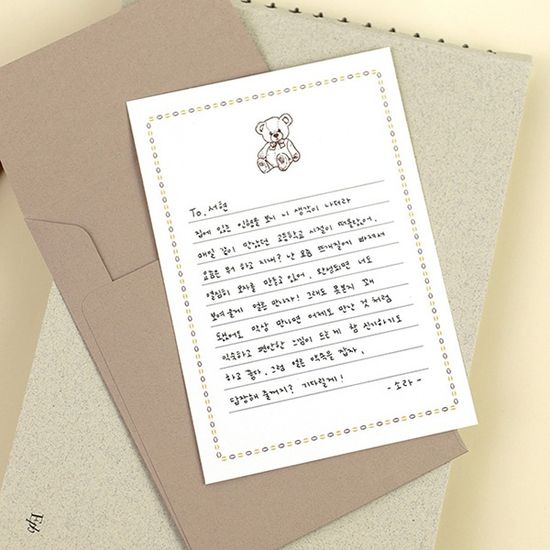 To. 서현
집에 있는 인형을 보니 니 생각이 나더라
매일 같이 만났던 고등학교 시절이 떠올랐어.
요즘은 뭐 하고 지내? 난 요즘 뜨개질에 빠져서
열심히 모자를 만들고 있어. 완성되면 너도
보여줄게 얼른 만나자! 그래도 못본지 꽤
됐어도 막상 만나면 어제도 만난 것 처럼
익숙하고 편안한 느낌이 드는게 참 신기하기도
하고 좋다. 그럼 얼른 약속을 잡자.
답장해 줄꺼지? 기다릴게!
- 소라 -